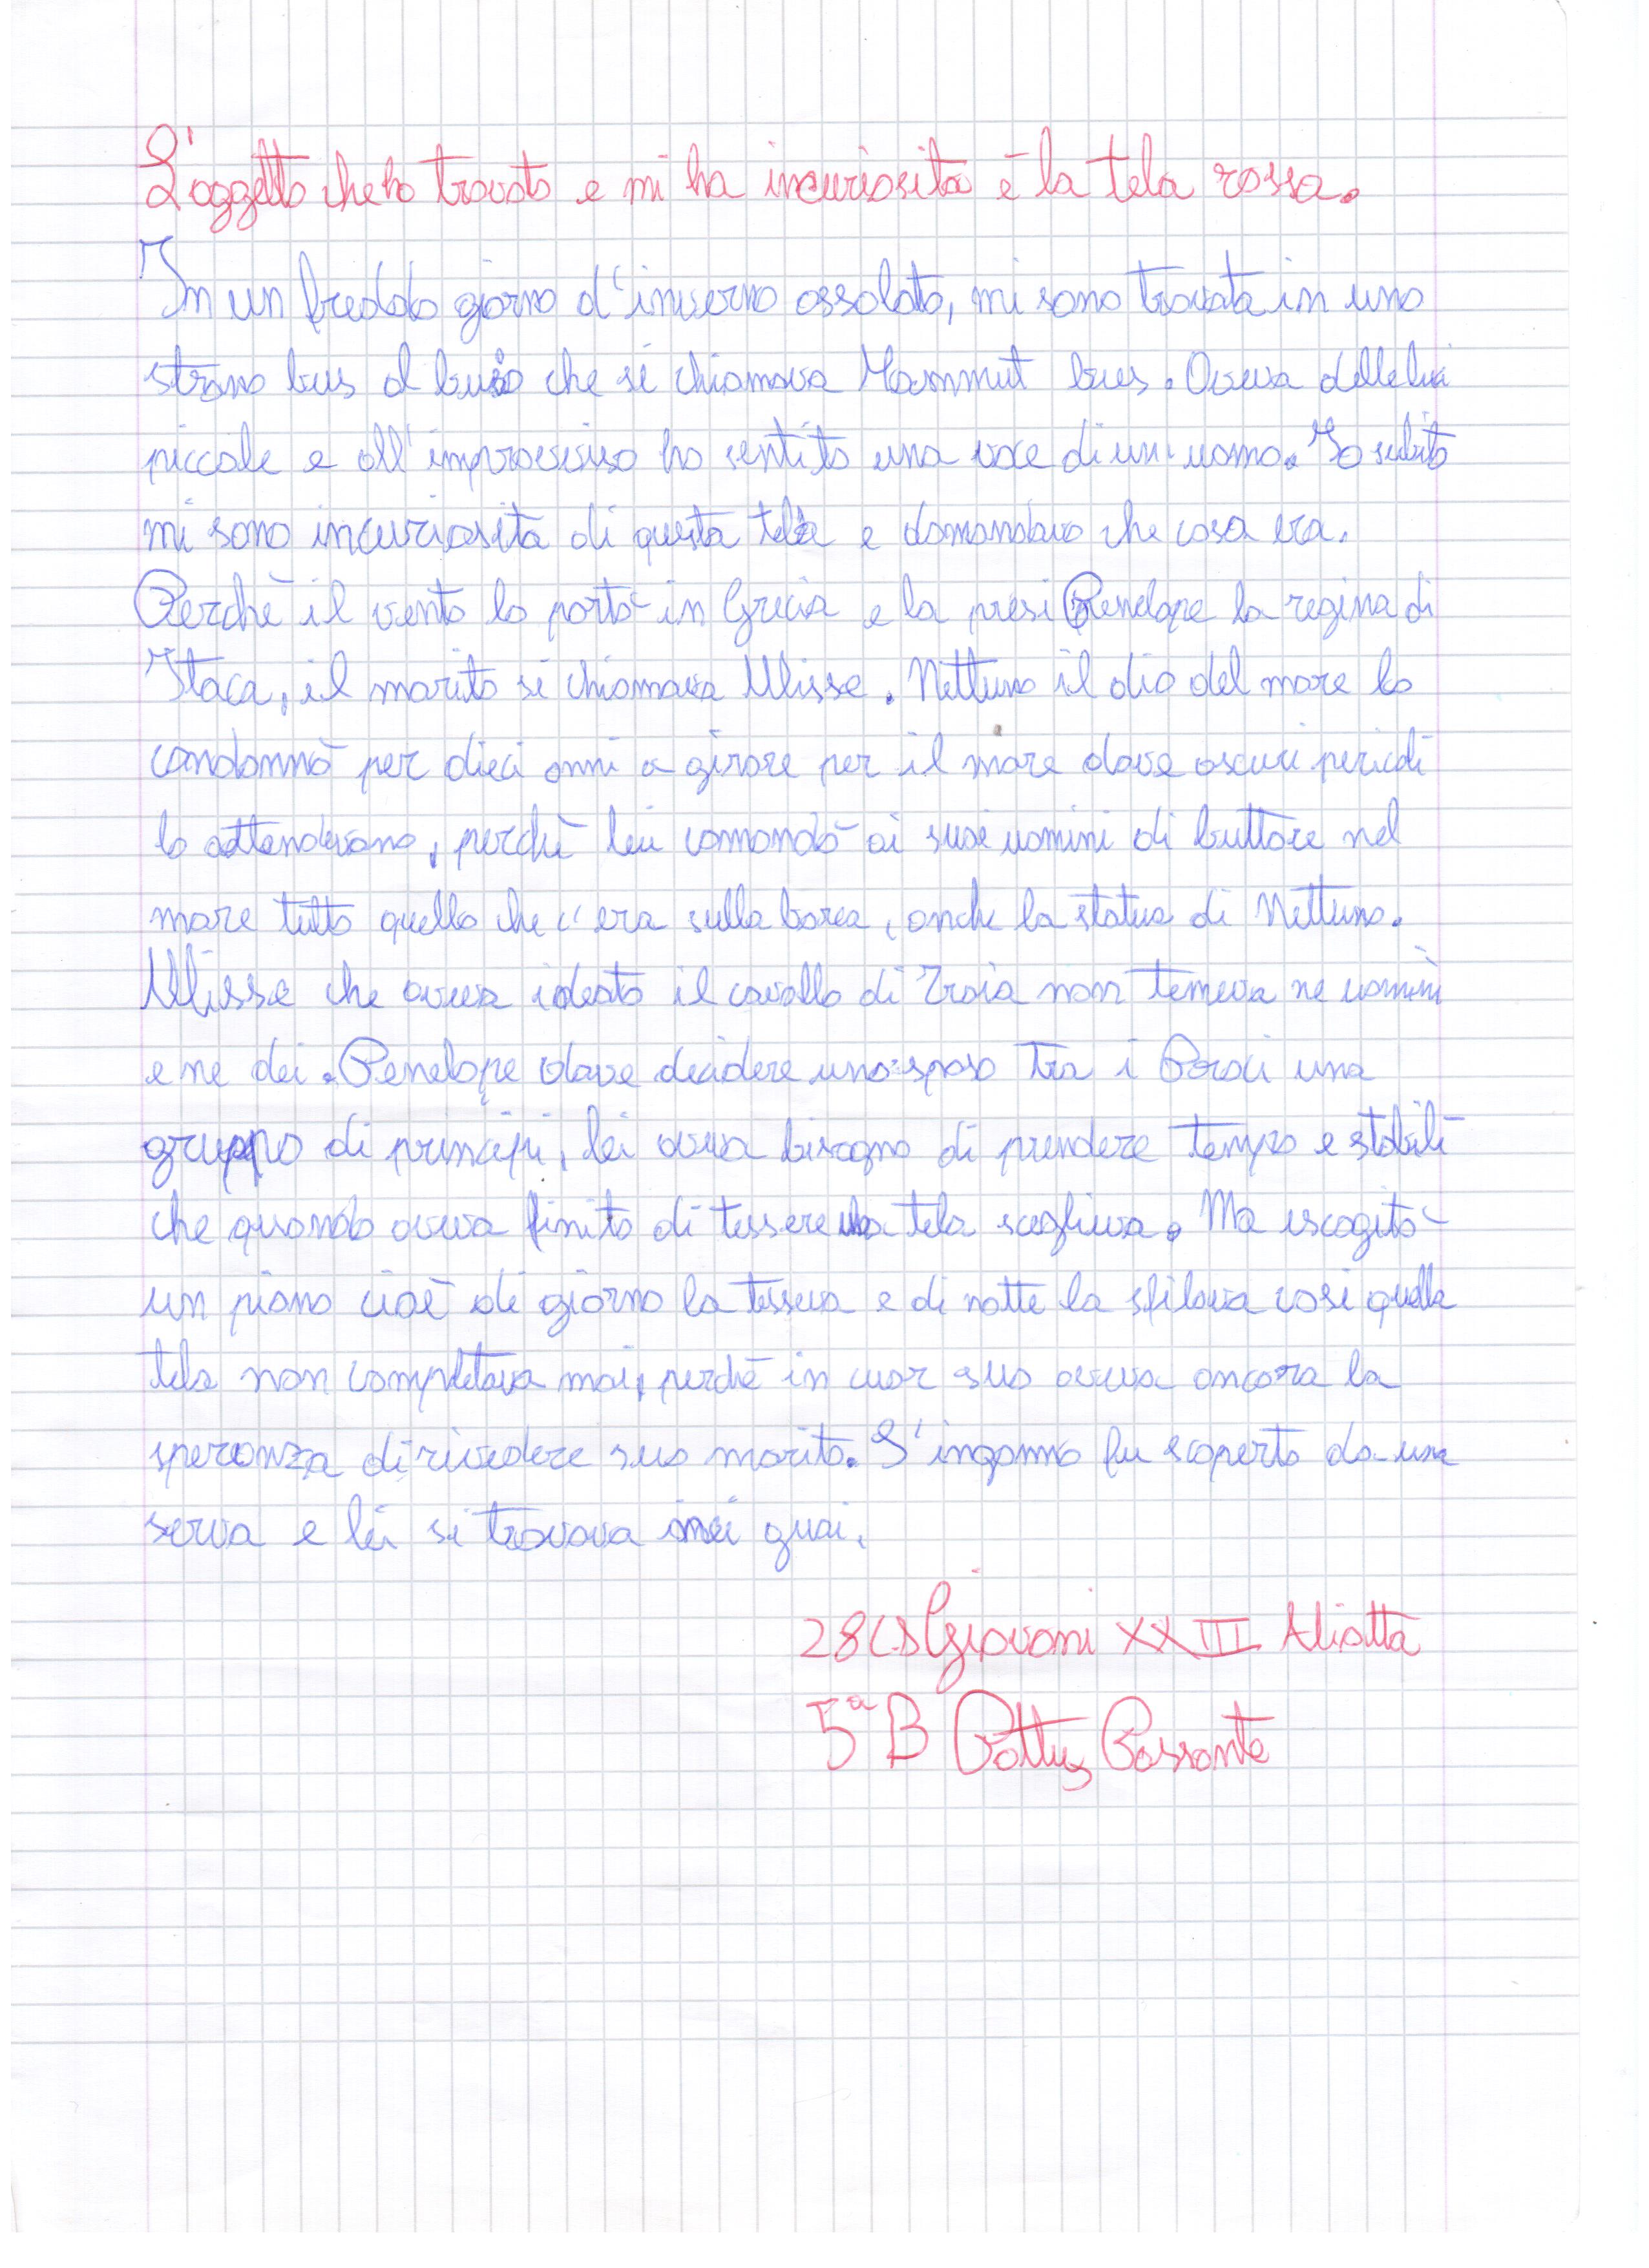 L'oggetto che ho trovato e mi ha incuriosita è la tela rossa.
In un freddo giorno d'inverno assolato, mi sono trovata in uno
strano bus al buio che si chiamava Mammut bus. Aveva delle luci
piccole e all'improvviso ho sentito una voce di un uomo. Io subito
mi sono incuriosita di questa tela e domandavo che cosa era.
Perchè il vento lo portò in Grecia e la presi Penelope la regina di
Itaca, il marito si chiamava Ulisse. Nettuno il dio del mare lo
condannò per dieci anni a girare per il mare dove oscuri pericoli
lo attendevano, perchè lui comandò ai suoi uomini di buttare nel
mare tutto quello che c'era sulla barca, anche la statua di Nettuno.
Ulisse che aveva ideato il cavallo di Troia non temeva ne uomini
e ne dei. Penelope deve decidere uno sposo tra i Proci una
gruppo di principi, lei aveva bisogno di prendere tempo e stabilì
che quando aveva finito di tessere la tela sceglieva. Ma escogitò
un piano cioè di giorno la tesseva e di notte la sfilava così quella
tela non completava mai, perchè in cuor suo aveva ancora la
speranza di rivedere suo marito. L'inganno fu scoperto da una
serva e lei si trovava nei guai.
28 C.S Giovanni XXIII Aliotta
5ª B Passante